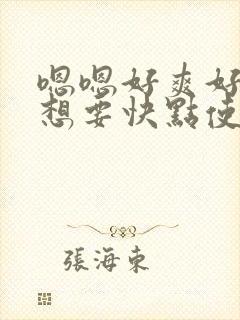 嗯嗯好爽好
想要快點使
張海東